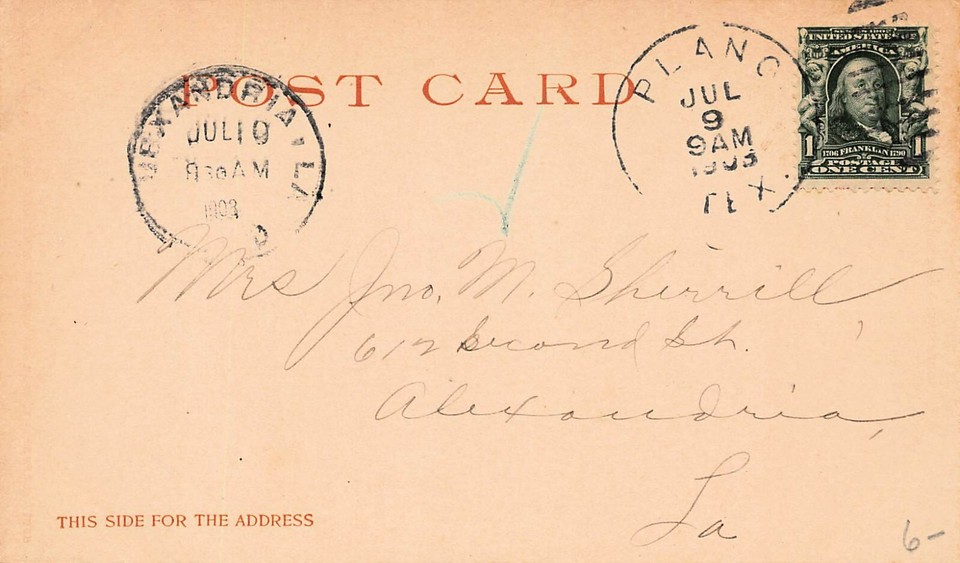 POST CARD
ALEXANDRIA, LA
JUL 10
830 AM
1903
PLANO
JUL
9
9AM
1903
TEX.
SERIES 1902
UNITED STATES OF
AMERICA
1706 FRANKLIN 1790
1 POSTAGE 1
ONE CENT
Mrs Jno. M. Sherrill
612 Second St.
Alexandria,
La
THIS SIDE FOR THE ADDRESS
6-